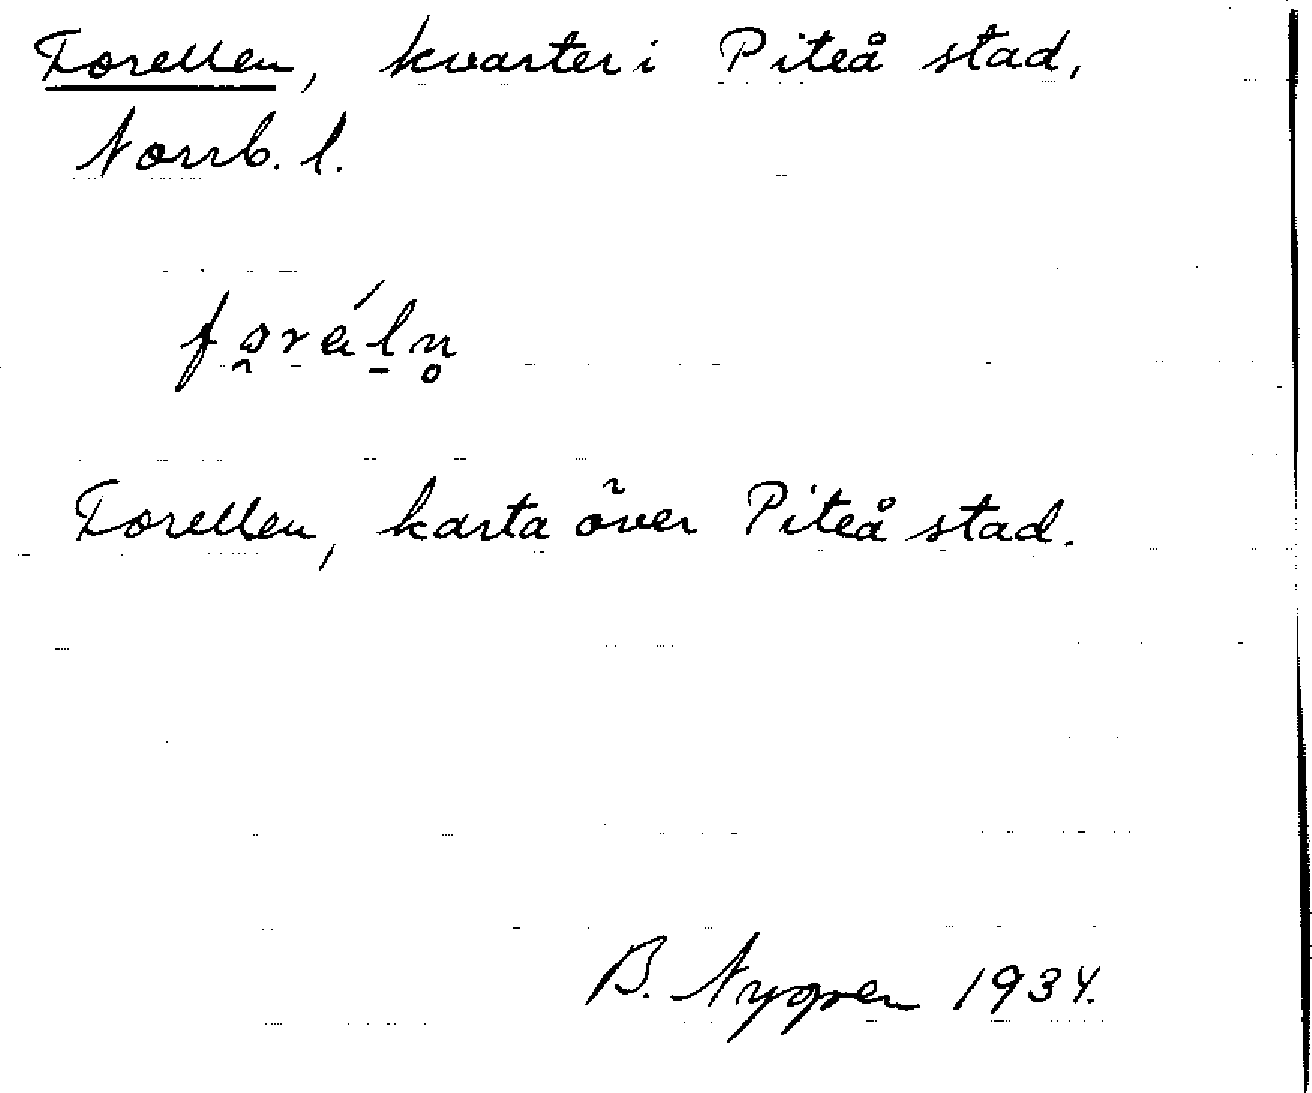 Forellen, kvarter i Piteå stad,
Norrb. l.
fo̯rä́l̠n̥
Forellen, karta över Piteå stad.
B. Nygren 1934.